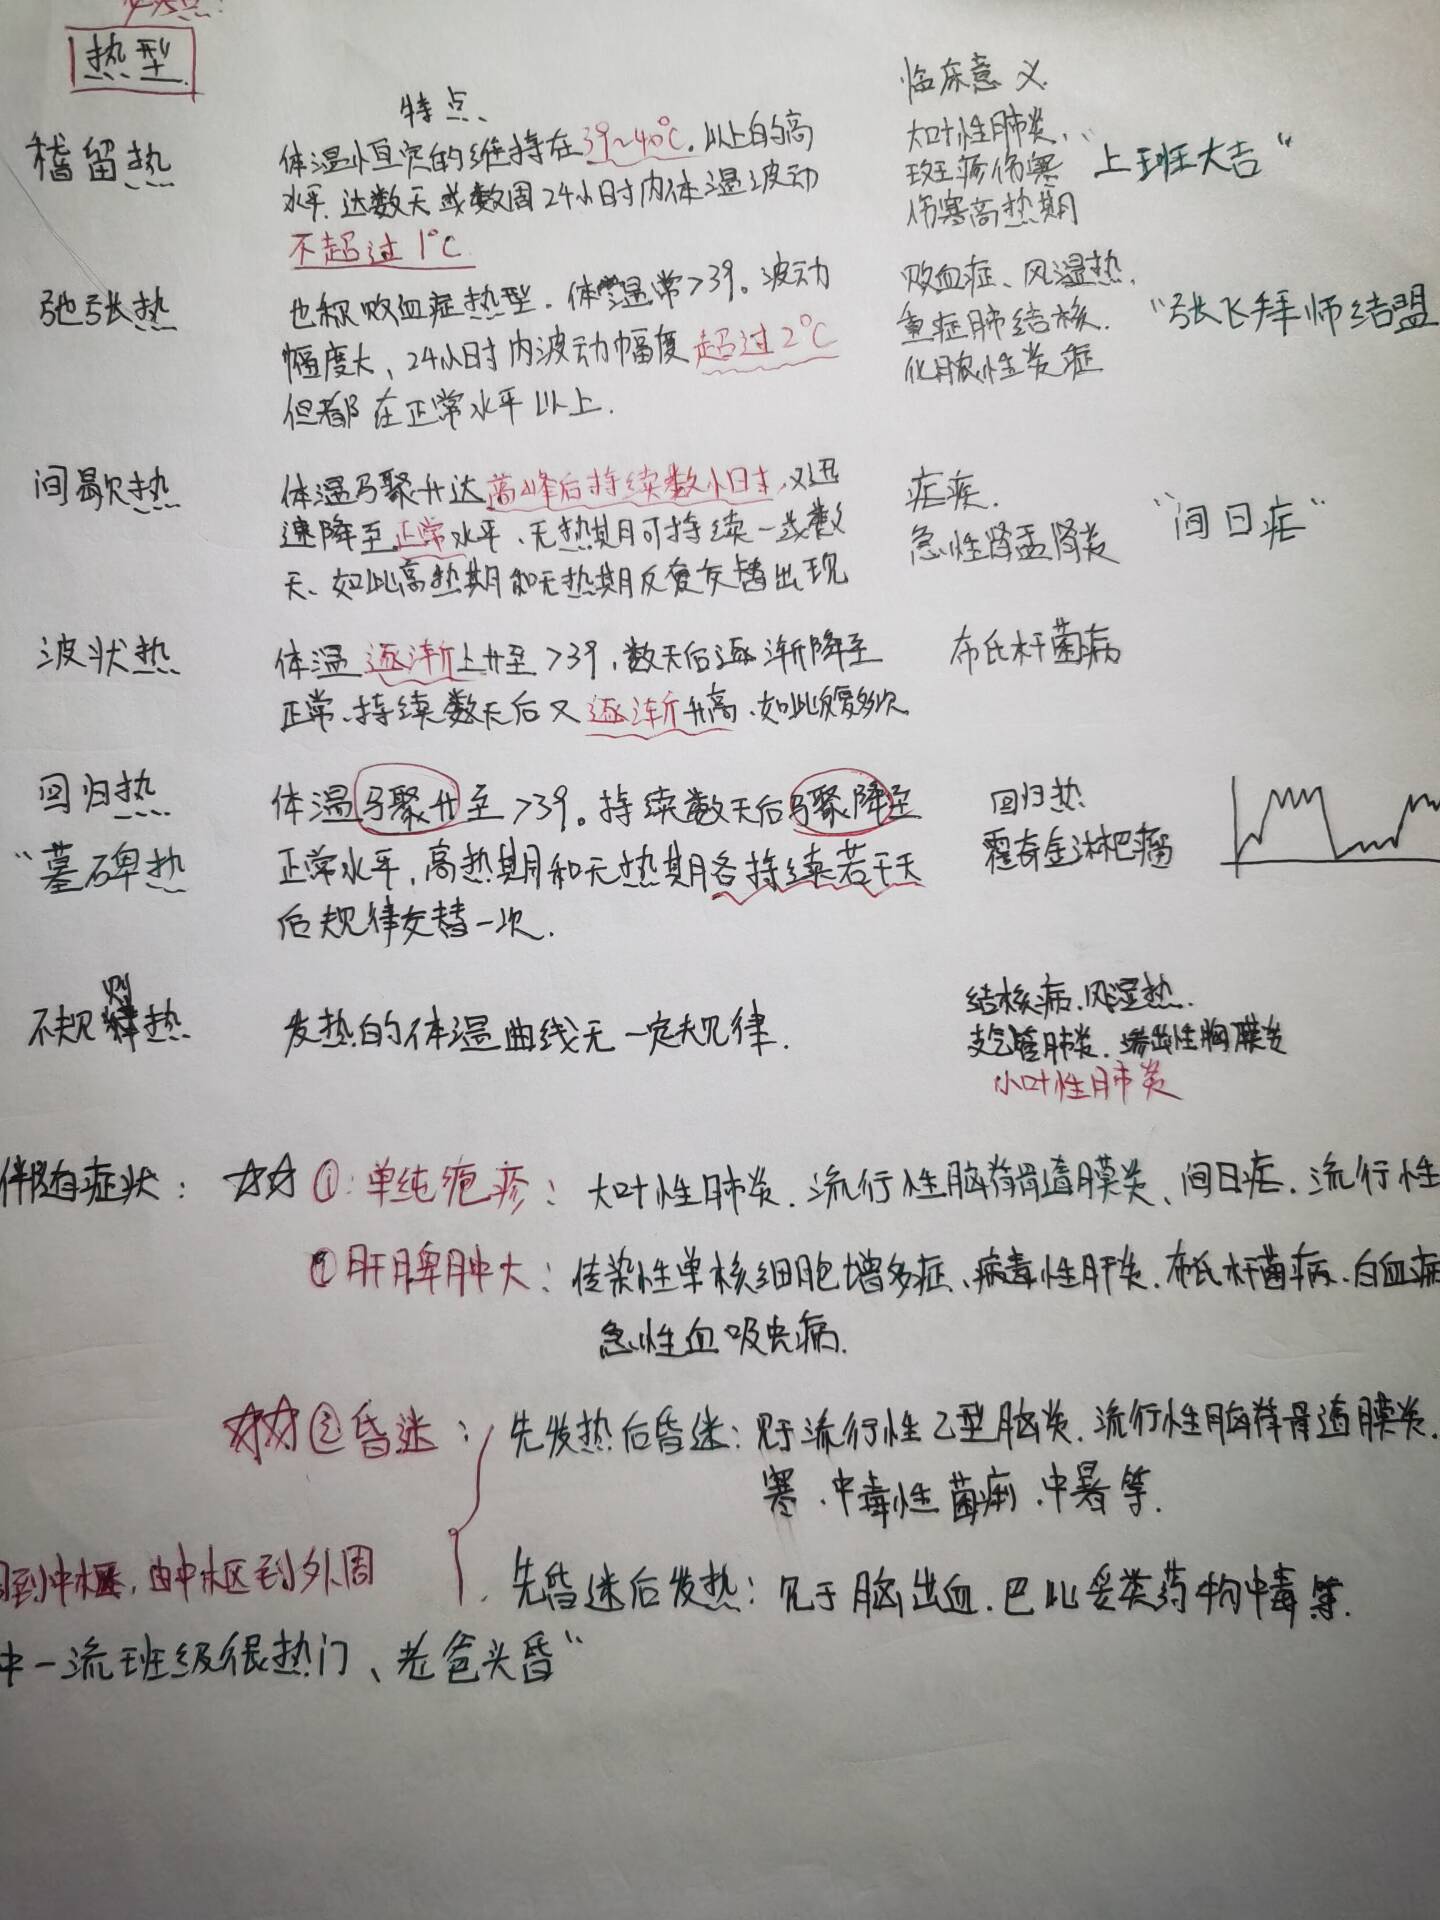 热型
特点
临床意义
稽留热
体温恒定的维持在39~40℃.以上的高
水平.达数天或数周24小时内体温波动
不超过1℃
大叶性肺炎,
斑疹伤寒
伤寒高热期
"上班大吉"
弛张热
也称败血症热型.体温常>39。波动
幅度大、24小时内波动幅度超过2℃
但都在正常水平以上.
败血症、风湿热.
重症肺结核.
化脓性炎症
"张飞拜师结盟
间歇热
体温马聚升达高峰后持续数小时,又迅
速降至正常水平、无热期可持续一或数
天、如此高热期和无热期反复交替出现
疟疾.
急性肾盂肾炎
"间日疟"
波状热
体温逐渐上升至>39,数天后逐渐降至
正常、持续数天后又逐渐升高、如此反复多次
布氏杆菌病
回归热
"墓碑热
体温马聚升至>39。持续数天后马聚降至
正常水平,高热期和无热期各持续若干天
后规律交替一次.
回归热
霍奇金淋巴瘤
不规则热
发热的体温曲线无一定规律.
结核病.风湿热.
支气管肺炎.渗出性胸膜炎
小叶性肺炎
伴随症状: ☆☆①:单纯疱疹:大叶性肺炎.流行性脑脊骨遗膜炎、间日疟.流行性
①肝脾肿大:传染性单核细胞增多症、病毒性肝炎.布氏杆菌病、白血病
急性血吸虫病.
☆☆②昏迷: 先发热后昏迷:见于流行性乙型脑炎.流行性脑脊骨遗膜炎.
寒.中毒性菌痢.中暑等.
到中枢,由中枢到外周
先昏迷后发热:见于脑出血.巴比妥类药物中毒等.
中一流班级很热门、老爸头昏"